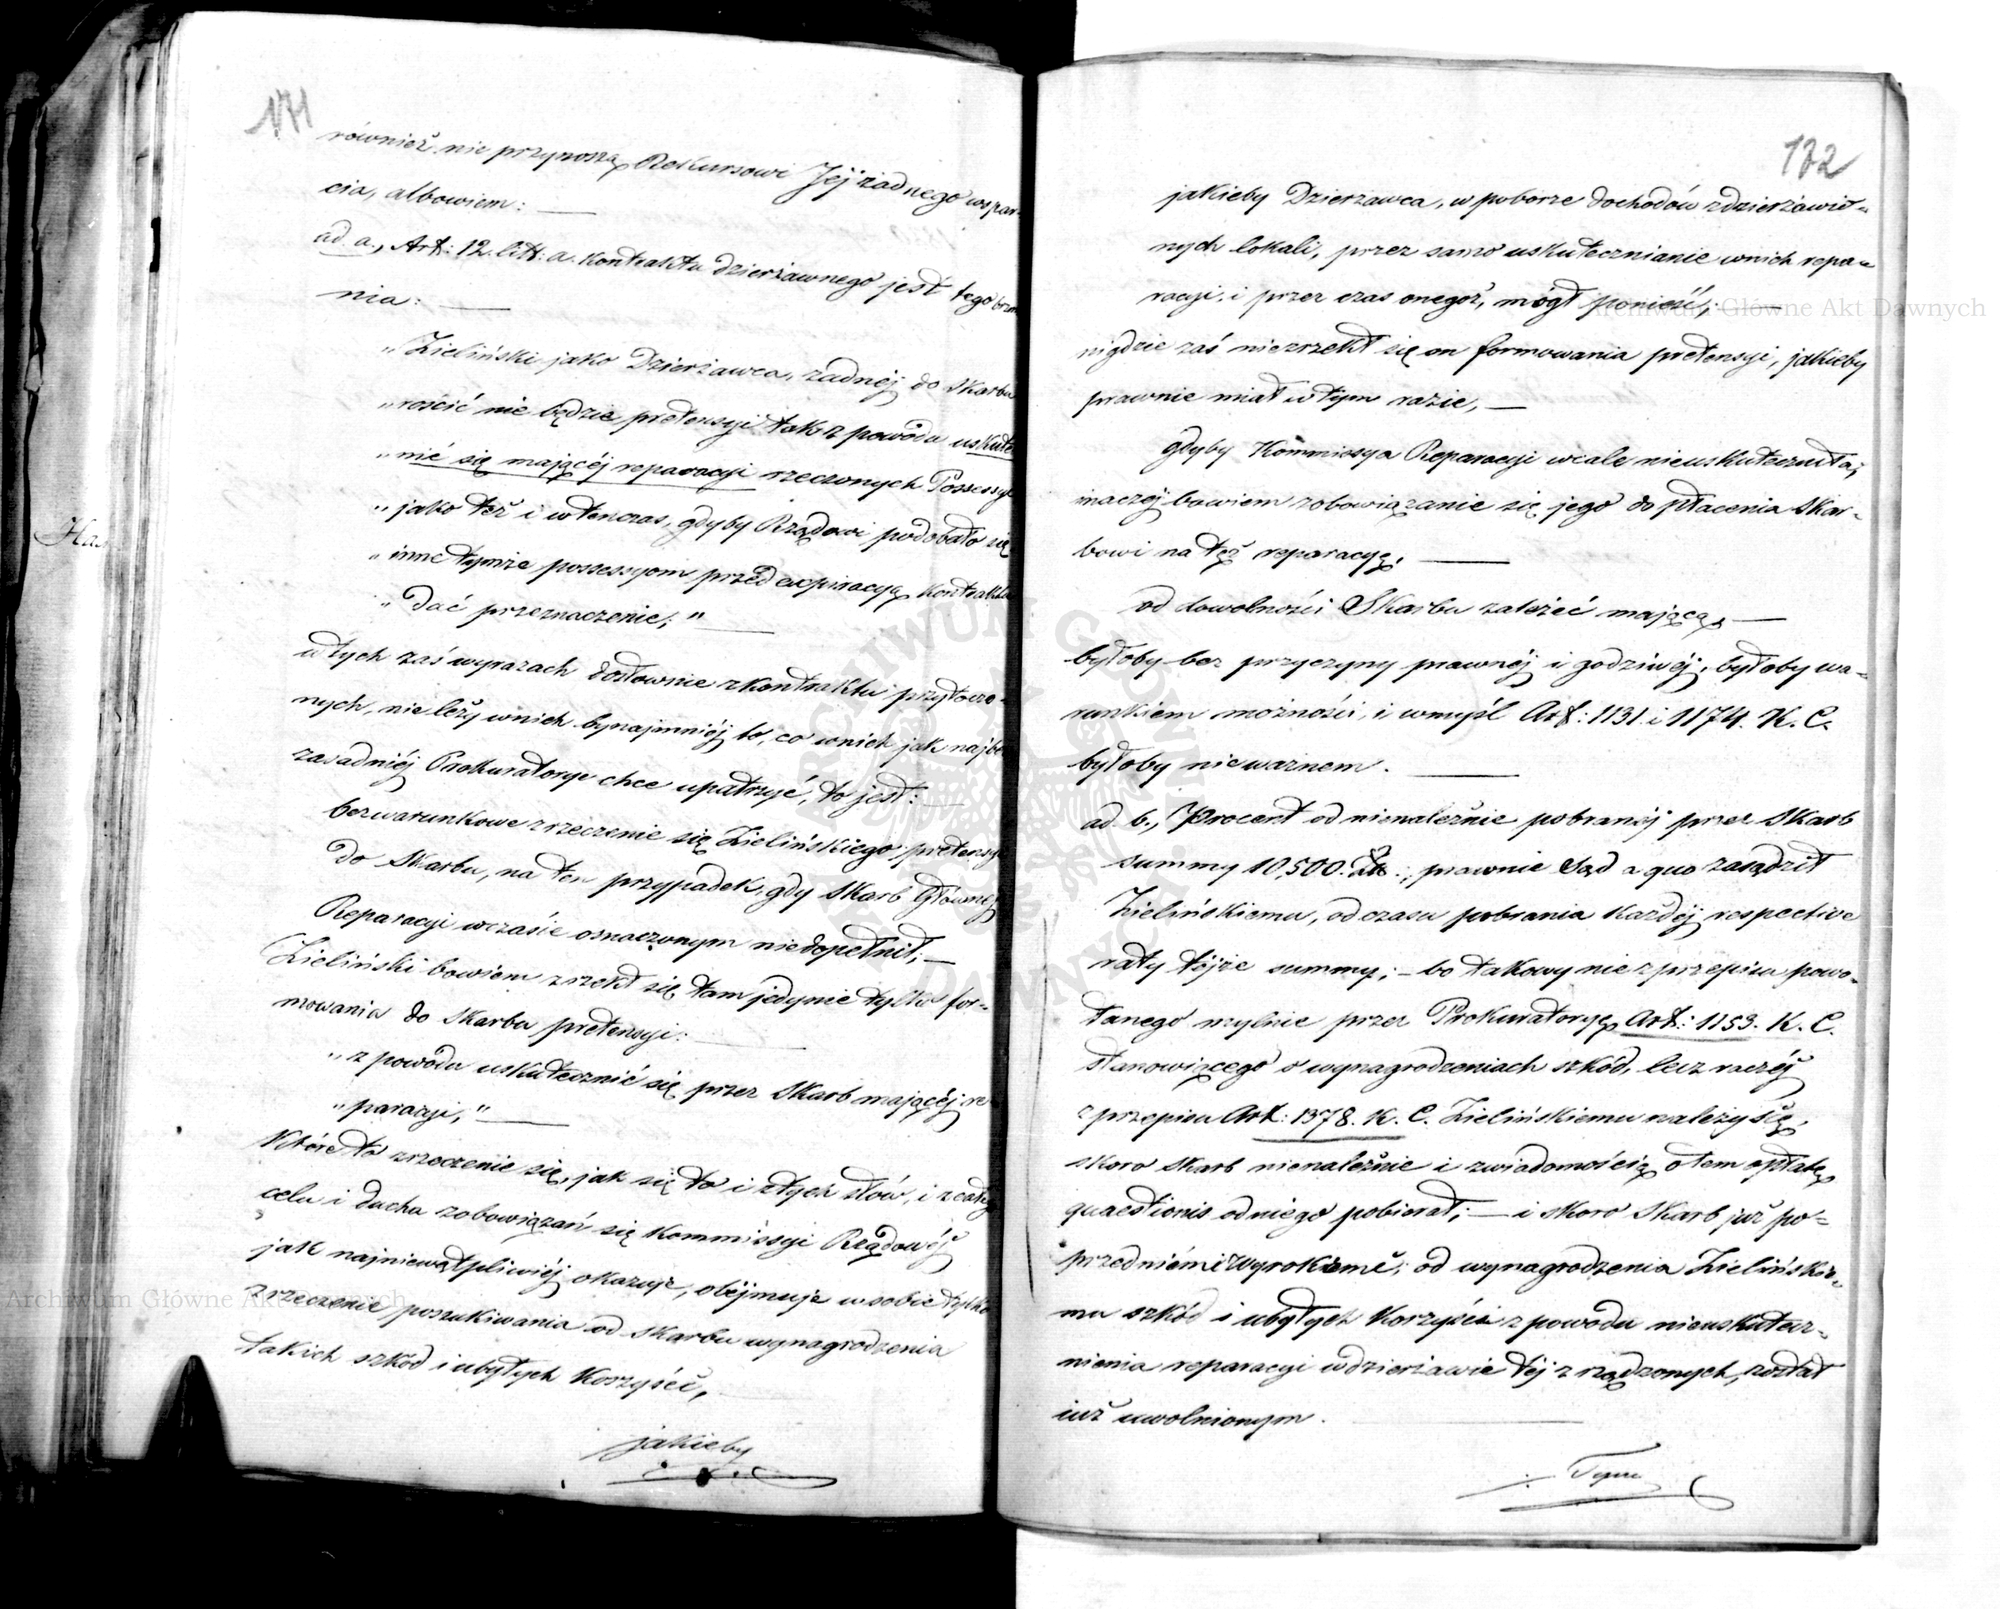 171
również nie przynoszą Rekursowi Jej żadnego wspar-
cia, albowiem: —
ad a., Art: 12. litt: a. Kontraktu dzierżawnego jest tego brzmie
nia: —
„Zieliński jako Dzierżawca, żadnéj do Skarbu
„rościć nie będzie pretensyi tak z powodu uskutecz
„nić się mającéj reparacyi rzeczonych Possessyi
„jako też i wtenczas, gdyby Rządowi podobało się
„inne tymże possessyom przed expiracyą Kontraktu
„dać przeznaczenie;" —
w tych zaś wyrazach dosłownie z Kontraktu przytoczo-
nych, nie leży w nich bynajmniéj to, co w nich jak najbez
zasadniéj Prokuratorya chce upatrzyć, to jest: —
bezwarunkowe zrzeczenie się Zielińskiego pretensyi
do Skarbu, na ten przypadek, gdy Skarb Główney
Reparacyi w czasie oznaczonym niedopełnił; —
Zieliński bowiem zrzekł się tam jedynie tylko for-
mowania do Skarbu pretensyi: —
„z powodu uskutecznić się przez Skarb mającéj re
„paracyi," —
Które to zrzeczenie się, jak się to i z tych słów, i z całego
celu i ducha zobowiązań się Kommissyi Rządowéj
jak najniewątpliwiéj okazuje, obéjmuje w sobie tylko
zrzeczenie poszukiwania od Skarbu wynagrodzenia
takich szkód i ubyłych Korzyści,
jakieby
172
jakieby Dzierżawca, w poborze dochodów zdzierżawio-
nych lokali, przez samo uskutecznianie w nich repa-
racyi, i przez czas onegoż, mógł ponieść; —
nigdzie zaś niezrzekł się on formowania pretensyi, jakieby
prawnie miał w tym razie, —
gdyby Kommissya Reparacyi wcale nieuskuteczniła;
inaczéj bowiem zobowiązanie się jego do płacenia Skar-
bowi na też reparacyę, —
od dowolności Skarbu zależeć mającą, —
byłoby bez przyczyny prawnéj i godziwéj, byłoby wa-
runkiem możności, i w myśl Art: 1131. i 1174. K. C.
byłoby nieważnem. —
ad b., Procent od nienależnie pobranéj przez Skarb
summy 10,500. Zł:, prawnie Sąd a quo zasądził
Zielińskiemu, od czasu pobrania Każdéj respective
raty téjże summy; — bo takowy nie z przepisu powo-
łanego mylnie przez Prokuratoryę, Art: 1153. K. C.
stanowiącego o wynagrodzeniach szkód, lecz raczéj
z przepisu Art: 1378. K. C. Zielińskiemu należy się,
skoro Skarb nienależnie i z wiadomością o tem opłatę
quaestionis od niego pobierał; — i skoro Skarb już po-
przedniemi Wyrokami, od wynagrodzenia Zielińskie-
mu szkód i ubyłych Korzyści z powodu nieuskutecz-
nienia reparacyi w dzierżawie téj zrządzonych, został
już uwolnionym. —
Archiwum Główne Akt Dawnych
Archiwum Główne Akt Dawnych
ARCHIWUM GŁÓWNE AKT DAWNYCH